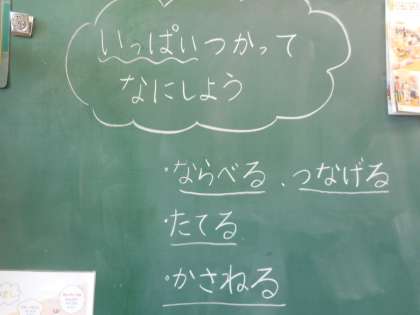 いっぱいつかって
なにしよう
・ならべる 、つなげる
・たてる
・かさねる